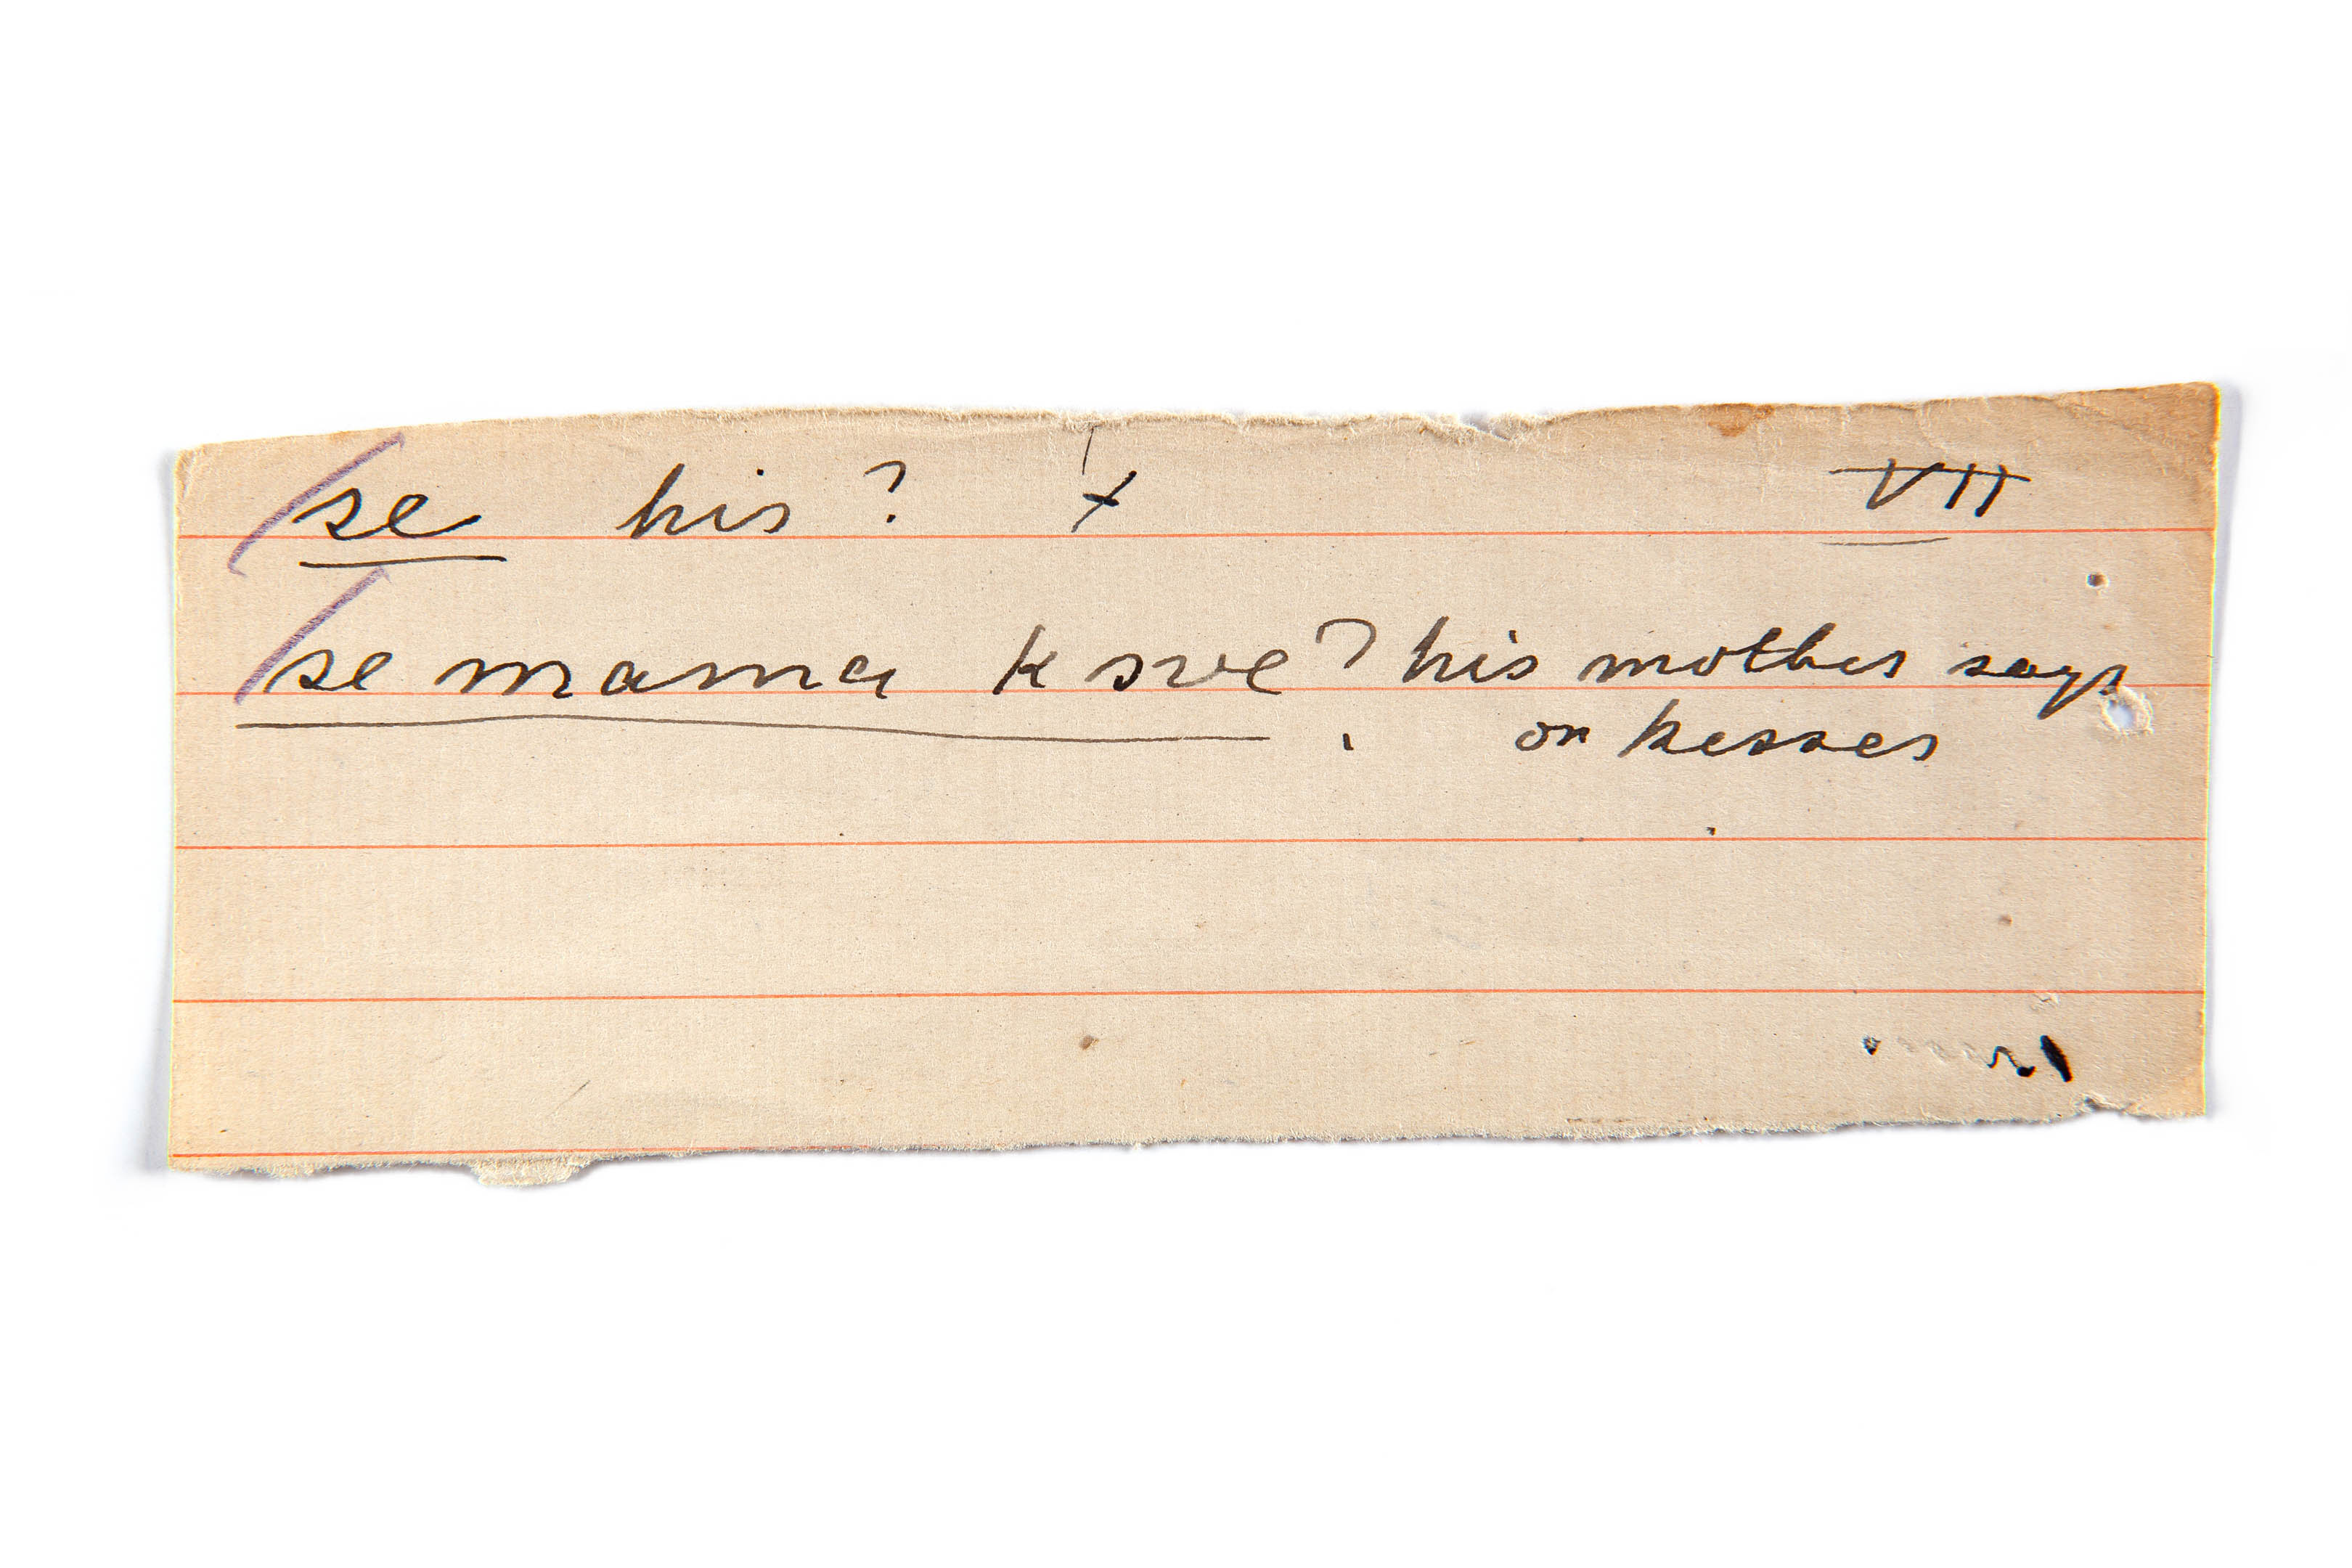 se his? x VII
se mama k sve? his mother says
or kesses